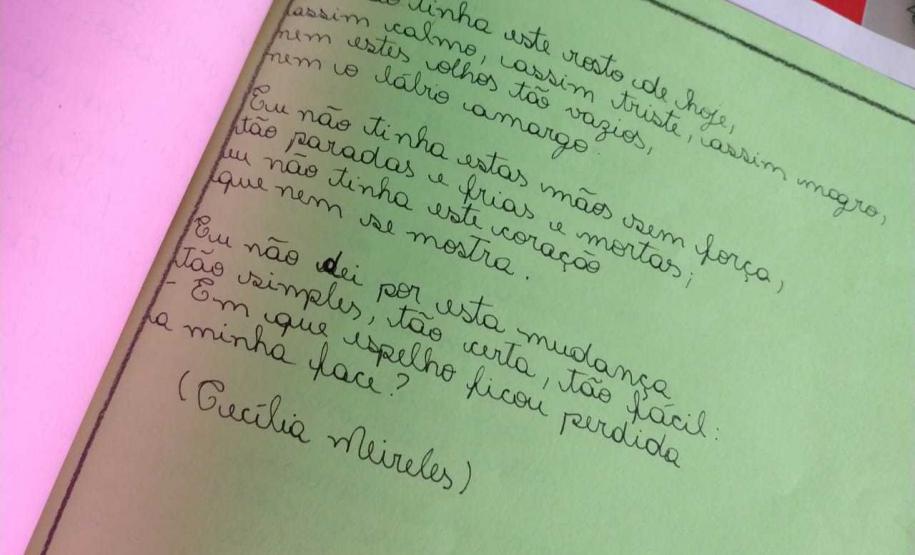 tinha este rosto de hoje,
assim calmo, assim triste, assim magro,
nem estes olhos tão vazios,
nem o lábio amargo.
Eu não tinha estas mãos sem força,
tão paradas e frias e mortas;
eu não tinha este coração
que nem se mostra.
Eu não dei por esta mudança
tão simples, tão certa, tão fácil:
- Em que espelho ficou perdida
a minha face?
(Cecília Meireles)